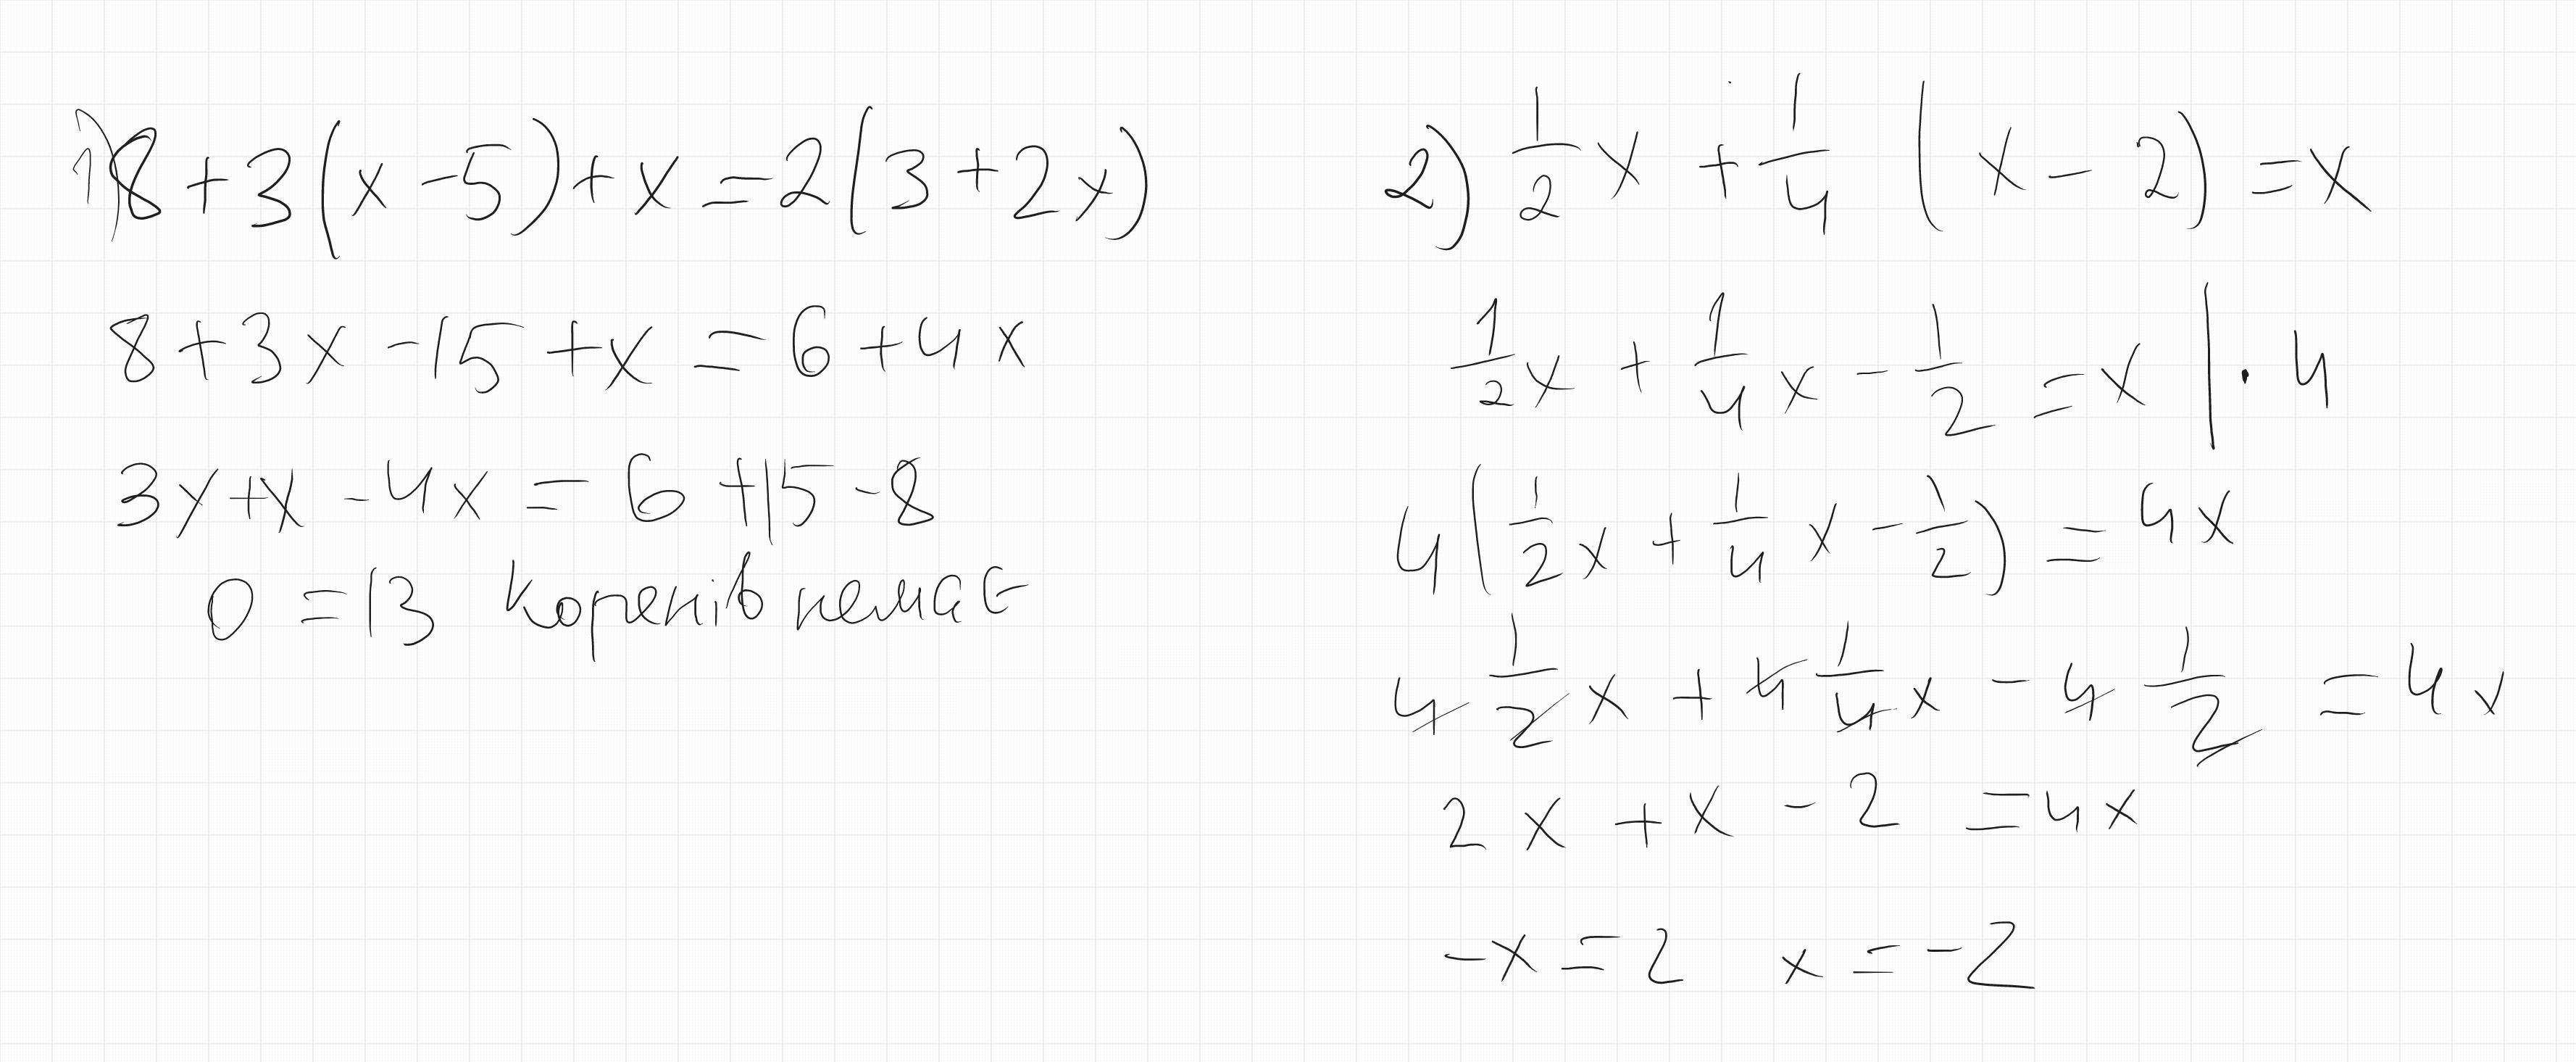 1) 8 + 3(x - 5) + x = 2(3 + 2x)
8 + 3x - 15 + x = 6 + 4x
3x + x - 4x = 6 + 15 - 8
0 = 13 Коренів немає
2) 1/2 x + 1/4 (x - 2) = x
1/2 x + 1/4 x - 1/2 = x | · 4
4(1/2 x + 1/4 x - 1/2) = 4x
4 1/2 x + 4 1/4 x - 4 1/2 = 4x
2x + x - 2 = 4x
-x = 2 x = -2